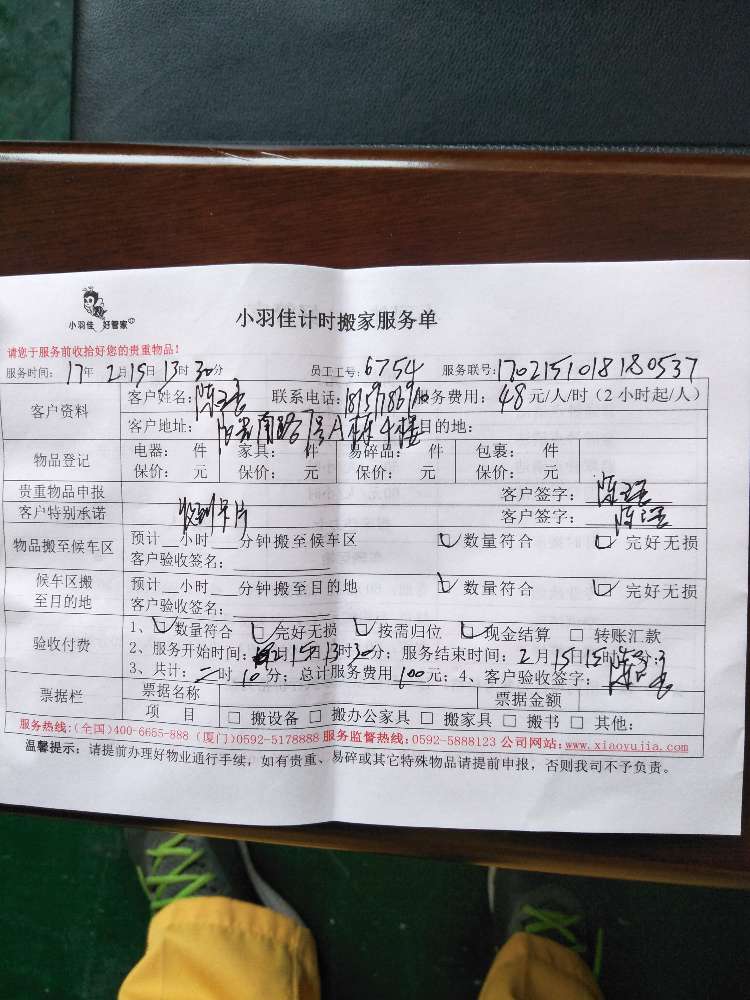 小羽佳 好管家
小羽佳计时搬家服务单
请您于服务前收拾好您的贵重物品！
服务时间：17年 2月15日 13时 30分 员工工号：6754 服务联号：1702151018180537
客户资料 客户姓名： 联系电话： 服务费用：48元/人/时（2小时起/人）
客户地址： 南路7号A栋4楼 目的地：
物品登记 电器： 件 家具： 件 易碎品： 件 包裹： 件
保价： 元 保价： 元 保价： 元 保价： 元
贵重物品申报 客户签字：
客户特别承诺 收到卡片 客户签字：
物品搬至候车区 预计__小时___分钟搬至候车区 数量符合 完好无损
客户验收签名：
候车区搬至目的地 预计__小时___分钟搬至目的地 数量符合 完好无损
客户验收签名：
验收付费 1、 数量符合 完好无损 按需归位 现金结算 转账汇款
2、服务开始时间：2月15日13时30分；服务结束时间：2月15日15时 分；
3、共计：二时10分；总计服务费用 元；4、客户验收签字：
票据栏 票据名称 票据金额
项 目 搬设备 搬办公家具 搬家具 搬书 其他：
服务热线：(全国)400-6655-888 (厦门)0592-5178888 服务监督热线：0592-5888123 公司网站：www.xiaoyujia.com
温馨提示：请提前办理好物业通行手续，如有贵重、易碎或其它特殊物品请提前申报，否则我司不予负责。